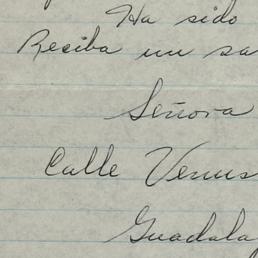 Ha sido
Reciba un sa
Señora
Calle Venus
Guadala